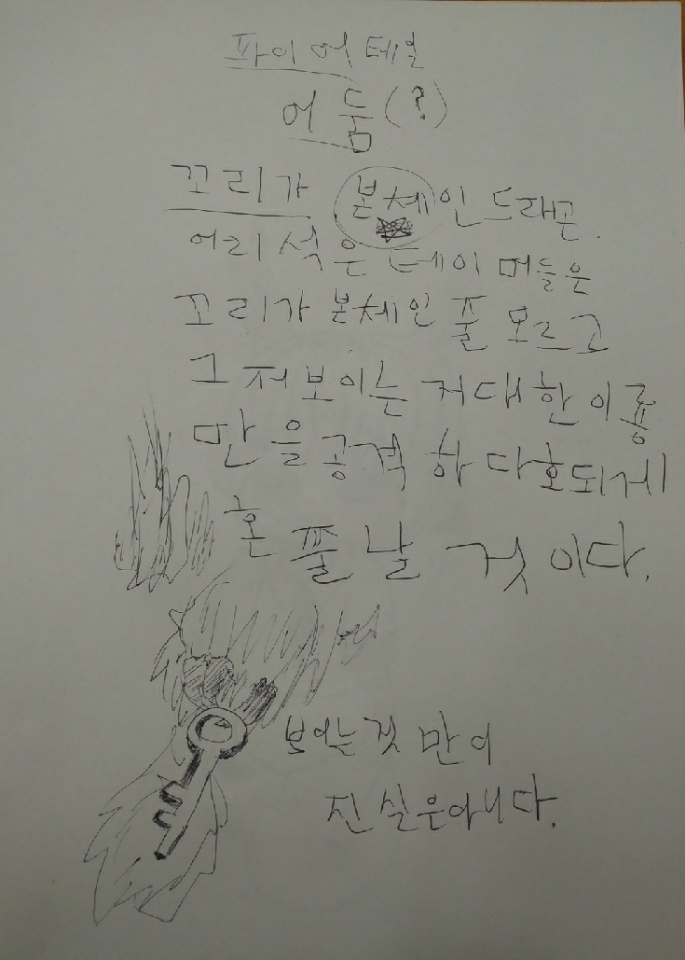 파이어테일
어둠(?)
꼬리가 본체인 드래곤.
어리석은 테이머들은
꼬리가 본체인 줄 모르고
그저 보이는 거대한 이 룡
만을 공격하다 호되게
혼쭐날 것이다.
보이는 것만이
진실은 아니다.